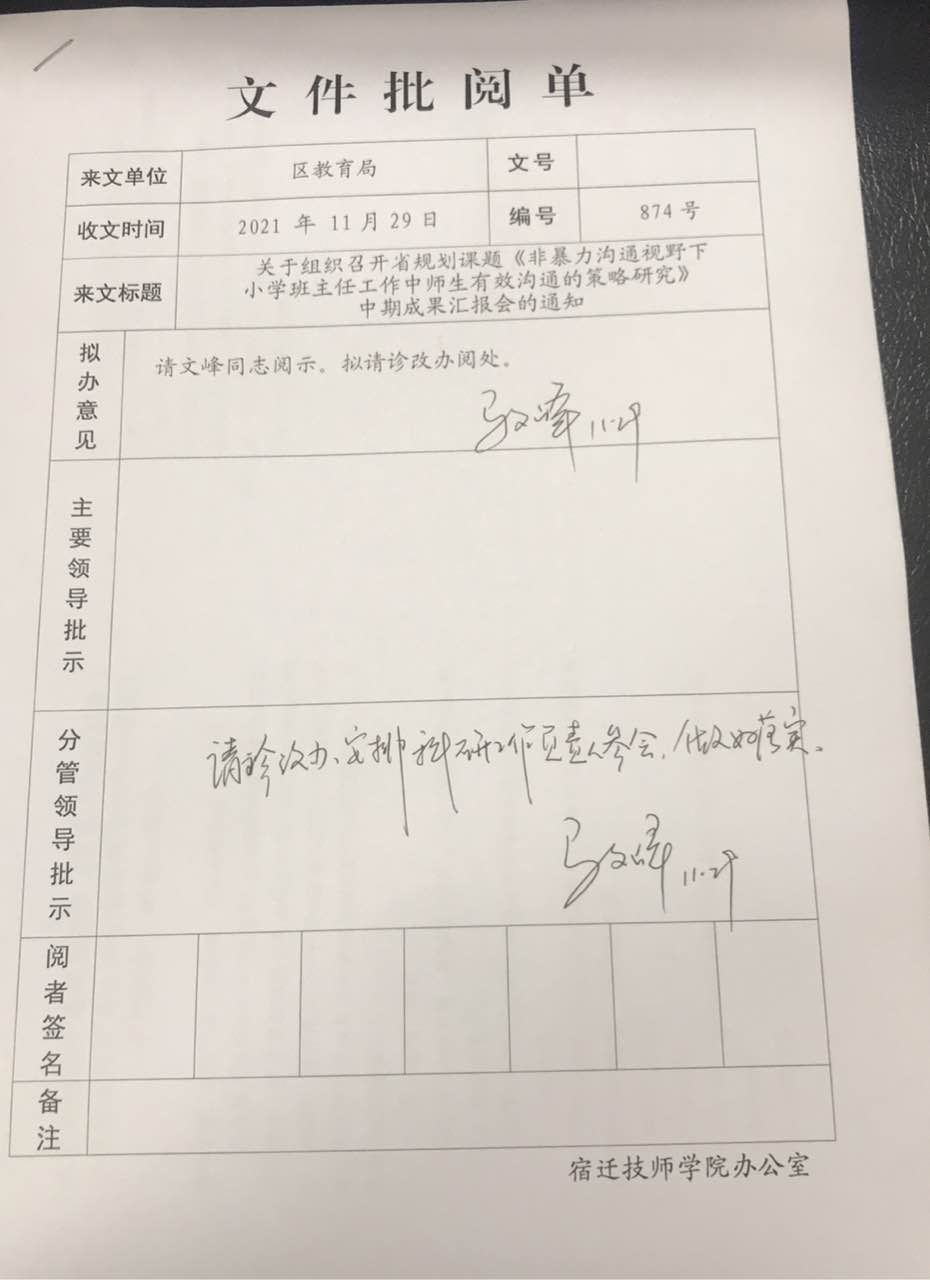 文件批阅单
来文单位 区教育局 文号
收文时间 2021 年 11 月 29 日 编号 874 号
来文标题 关于组织召开省规划课题《非暴力沟通视野下
小学班主任工作中师生有效沟通的策略研究》
中期成果汇报会的通知
拟办意见 请文峰同志阅示。拟请诊改办阅处。
文峰 11.29
主要领导批示
分管领导批示 请诊改办、安排科研工作负责人参会,做好落实。
文峰 11.29
阅者签名
备注
宿迁技师学院办公室